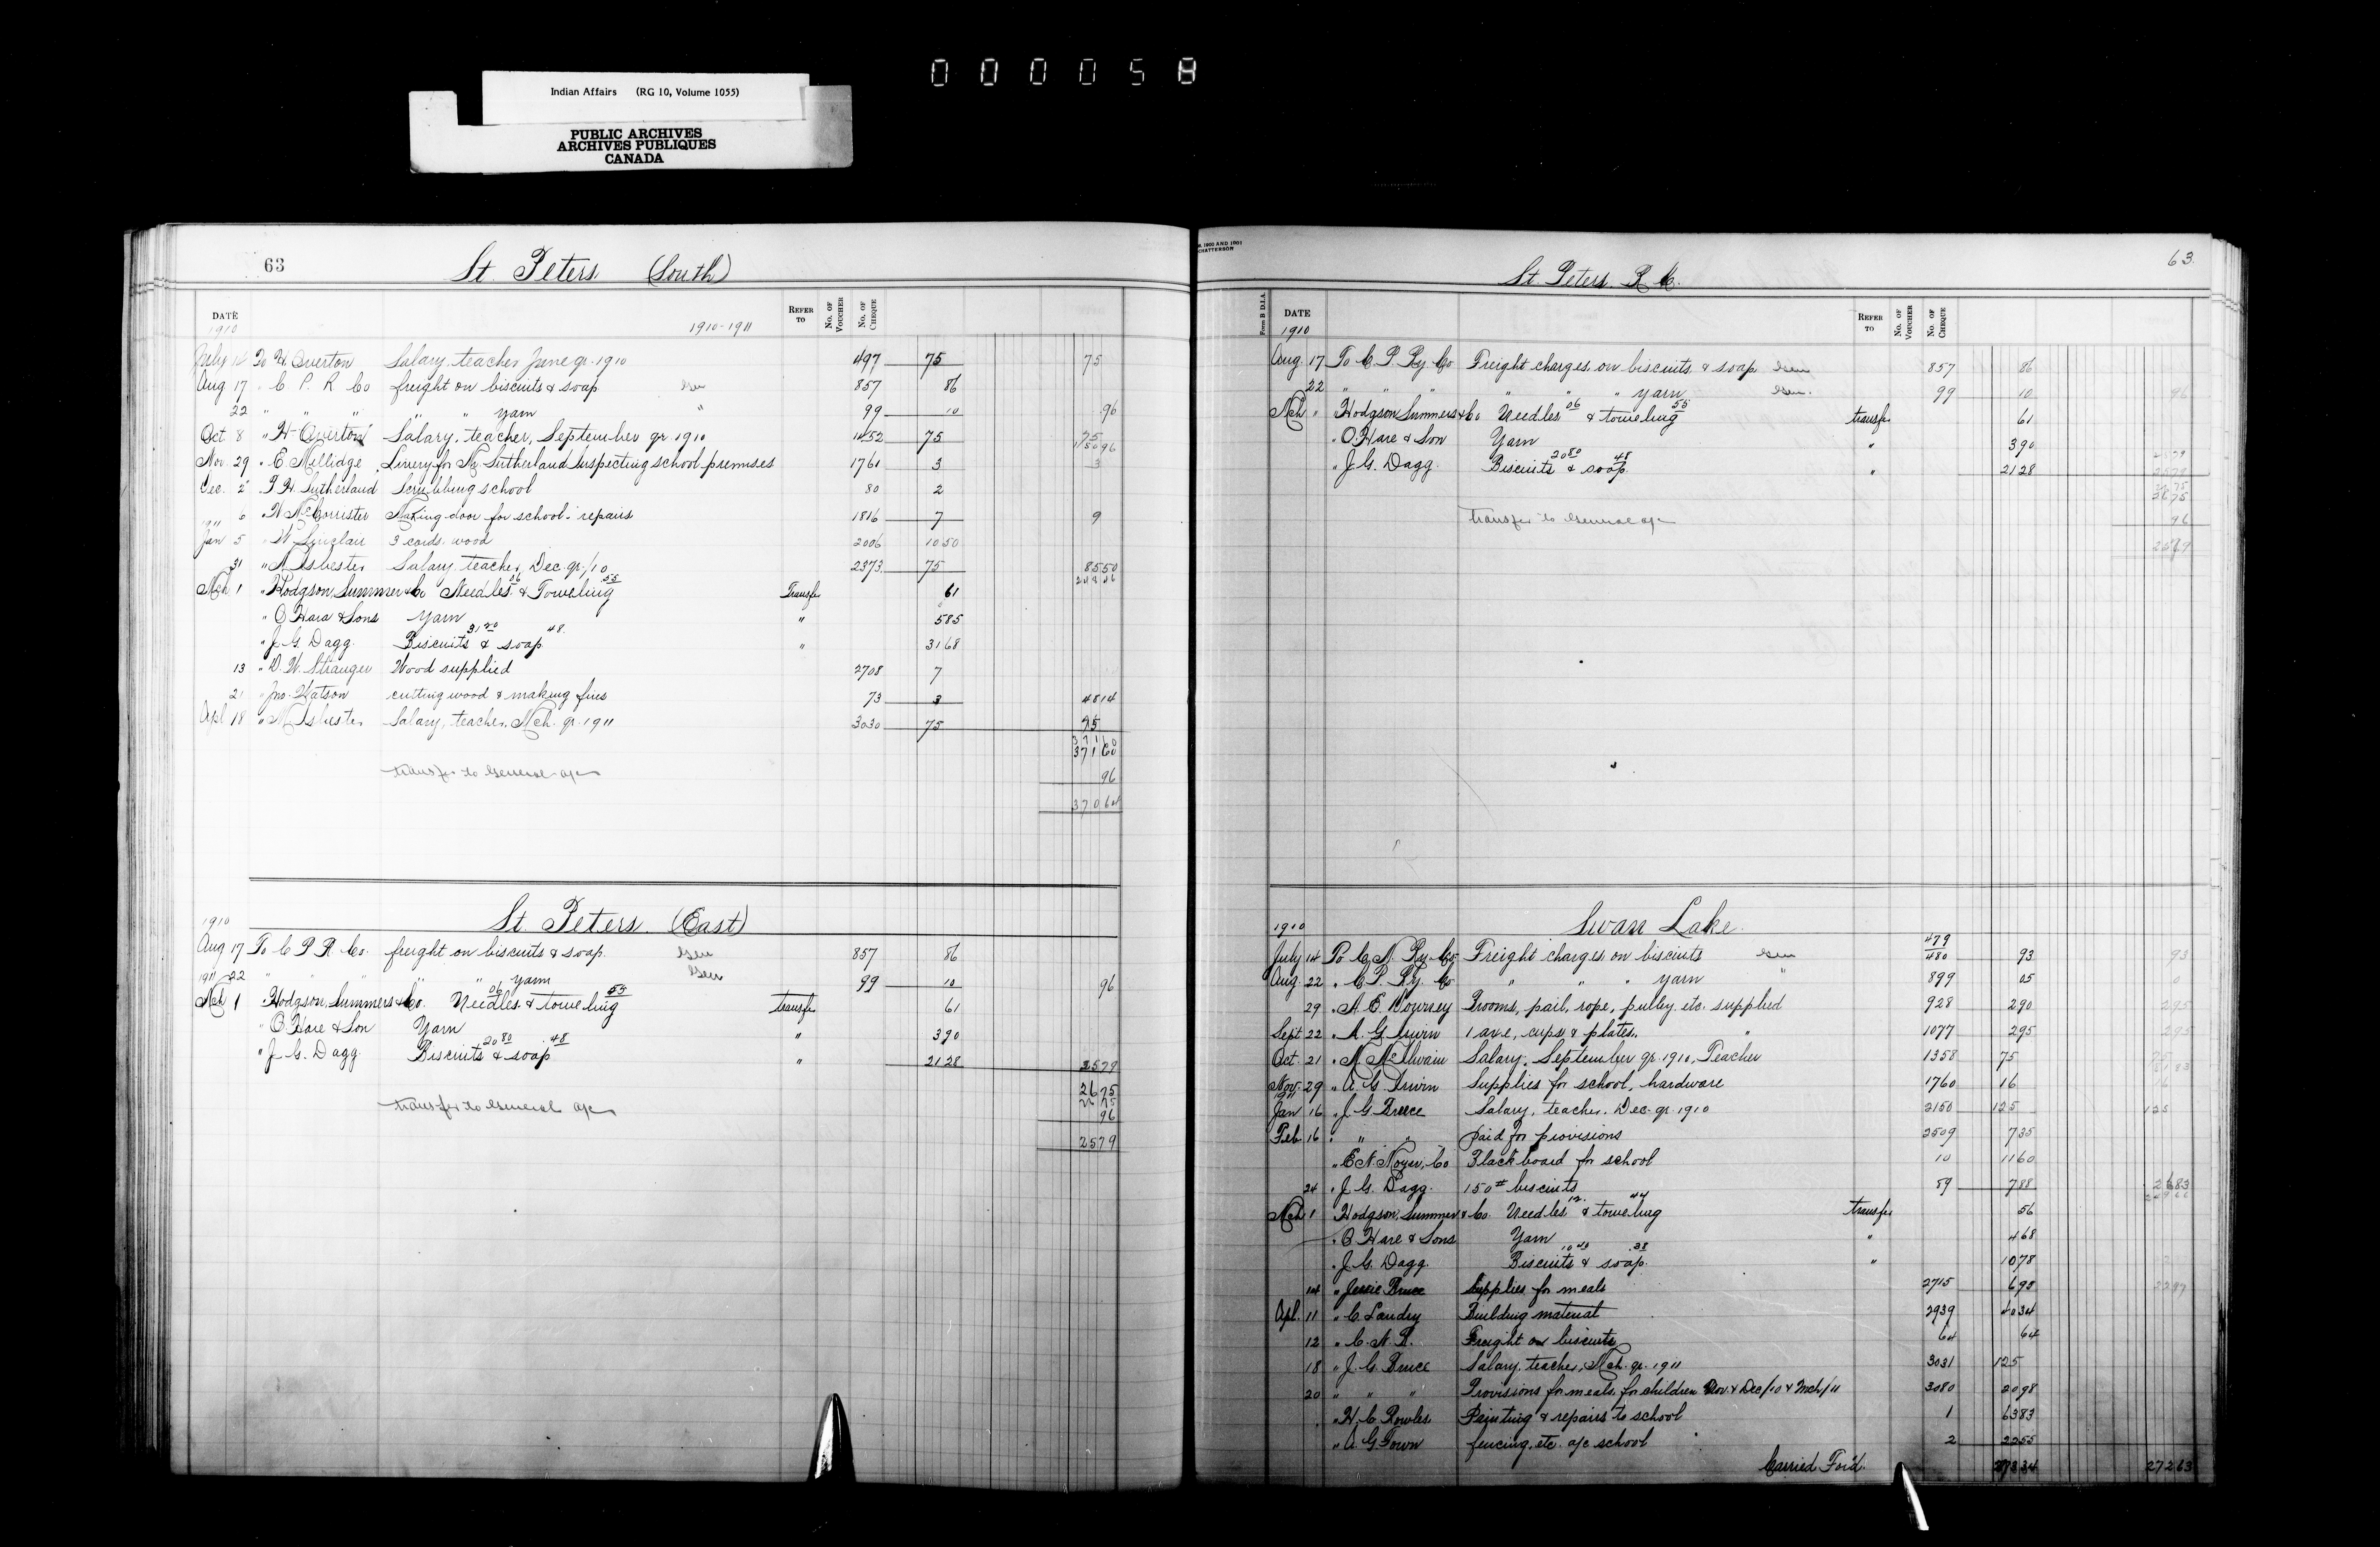 000058
Indian Affairs (RG 10, Volume 1055)
PUBLIC ARCHIVES
ARCHIVES PUBLIQUES
CANADA
63 St. Peters (South)
DATE REFER TO No. OF VOUCHER No. OF CHEQUE
1910 1910-1911
July 14 To H Overton Salary, teacher June qr. 1910 497 75 75
Aug 17 " C. P. R Co freight on biscuits & soap Gen 857 86
22 " " " " " yarn " 99 10 96
Oct 8 " H Overton Salary, teacher, September qr. 1910 1452 75 75
15096
Nov 29 " E. Millidge Livery for Mr Sutherland inspecting school premises 1761 3 3
Dec. 2 " P. H. Sutherland Scrubbing school 80 2
6 " W McCorrister Making door for school - repairs 1816 7 9
1911
Jan 5 " W Sinclair 3 cords wood 2006 1050
31 " A Isbester Salary, teacher, Dec. qr. /10 2373 75 8550
Mch 1 " Hodgson, Summer & Co Needles 06 & Toweling 55 Transfer 61
" O'Hara & Sons Yarn " 585
" J. G. Dagg. Biscuits 31 20 & soap 48 " 3168
13 " D. W. Stranger Wood supplied 2708 7
21 " Jno. Watson cutting wood & making fires 73 3 4814
Apl 18 " A Isbester Salary, teacher, Mch. qr. 1911 3030 75 75
37160
37160
transfer to General a/c 96
37064
St. Peters. (East)
1910
Aug 17 To C P R Co. freight on biscuits & soap Gen 857 86
22 " " " " " yarn Gen 99 10 96
1911
Mch 1 " Hodgson, Summers & Co. Needles 06 & toweling 55 transfer 61
" O'Hare & Son Yarn " 390
" J. G. Dagg. Biscuits 20 80 & soap 48 " 2128 2579
2675
2675
transfer to General a/c 96
2579
63
St. Peters. R. C.
Form B D.I.A. DATE REFER TO No. OF VOUCHER No. OF CHEQUE
1910
Aug. 17 To C. P. Ry. Co Freight charges on biscuits & soap Gen 857 86
22 " " " " " " yarn Gen. 99 10 96
Mch " Hodgson Summers & Co Needles 06 & toweling 55 transfer 61
" O'Hare & Son Yarn " 390
" J. G. Dagg. Biscuits 20 80 & soap 48 " 2128 2579
2675
transfer to General a/c 96
2579
Swan Lake.
1910
July 14 To C. N. Ry. Co. Freight charges on biscuits Gen 479 480 93 93
Aug. 22 " C. P. Ry. Co " " " yarn " 899 05
29 " A. E. Brooms, pail, rope, pulley etc. supplied 928 290 295
Sept 22 " A. G. Irwin 1 axe, cups & plates. " 1077 295 295
Oct. 21 " N. McIlwain Salary, September qr. 1910, Teacher 1358 75 75
Nov. 29 " A. G. Irwin Supplies for school, hardware 1760 16 16
1911
Jan 16 " J. G. Bruce Salary, teacher. Dec. qr. 1910 2150 125 125
Feb. 16 " " " paid for provisions 2509 735
" E. N. Moyer, Co Blackboard for school 10 1160
24 " J. G. Dagg. 150# biscuits 59 788 2683
Mch 1 " Hodgson, Summer & Co. Needles 12 & toweling 44 transfer 56
" O'Hare & Sons Yarn " 468
" J. G. Dagg. Biscuits 10 40 & soap 38 " 1078
14 " Jessie Bruce Supplies for meals 2715 698
Apl. 11 " C. Landry Building material 2939 4034
12 " C. N. R. Freight on biscuits 64 64
18 " J. G. Bruce Salary, teacher, Mch. qr. 1911 3031 125
20 " " " Provisions for meals for children Nov. & Dec/10 & Mch/11 3080 2098
" H. C. Rowles Painting & repairs to school 1 6383
" A. G. Town fencing, etc. a/c school 2 2255
Carried For'd. 27334 27263